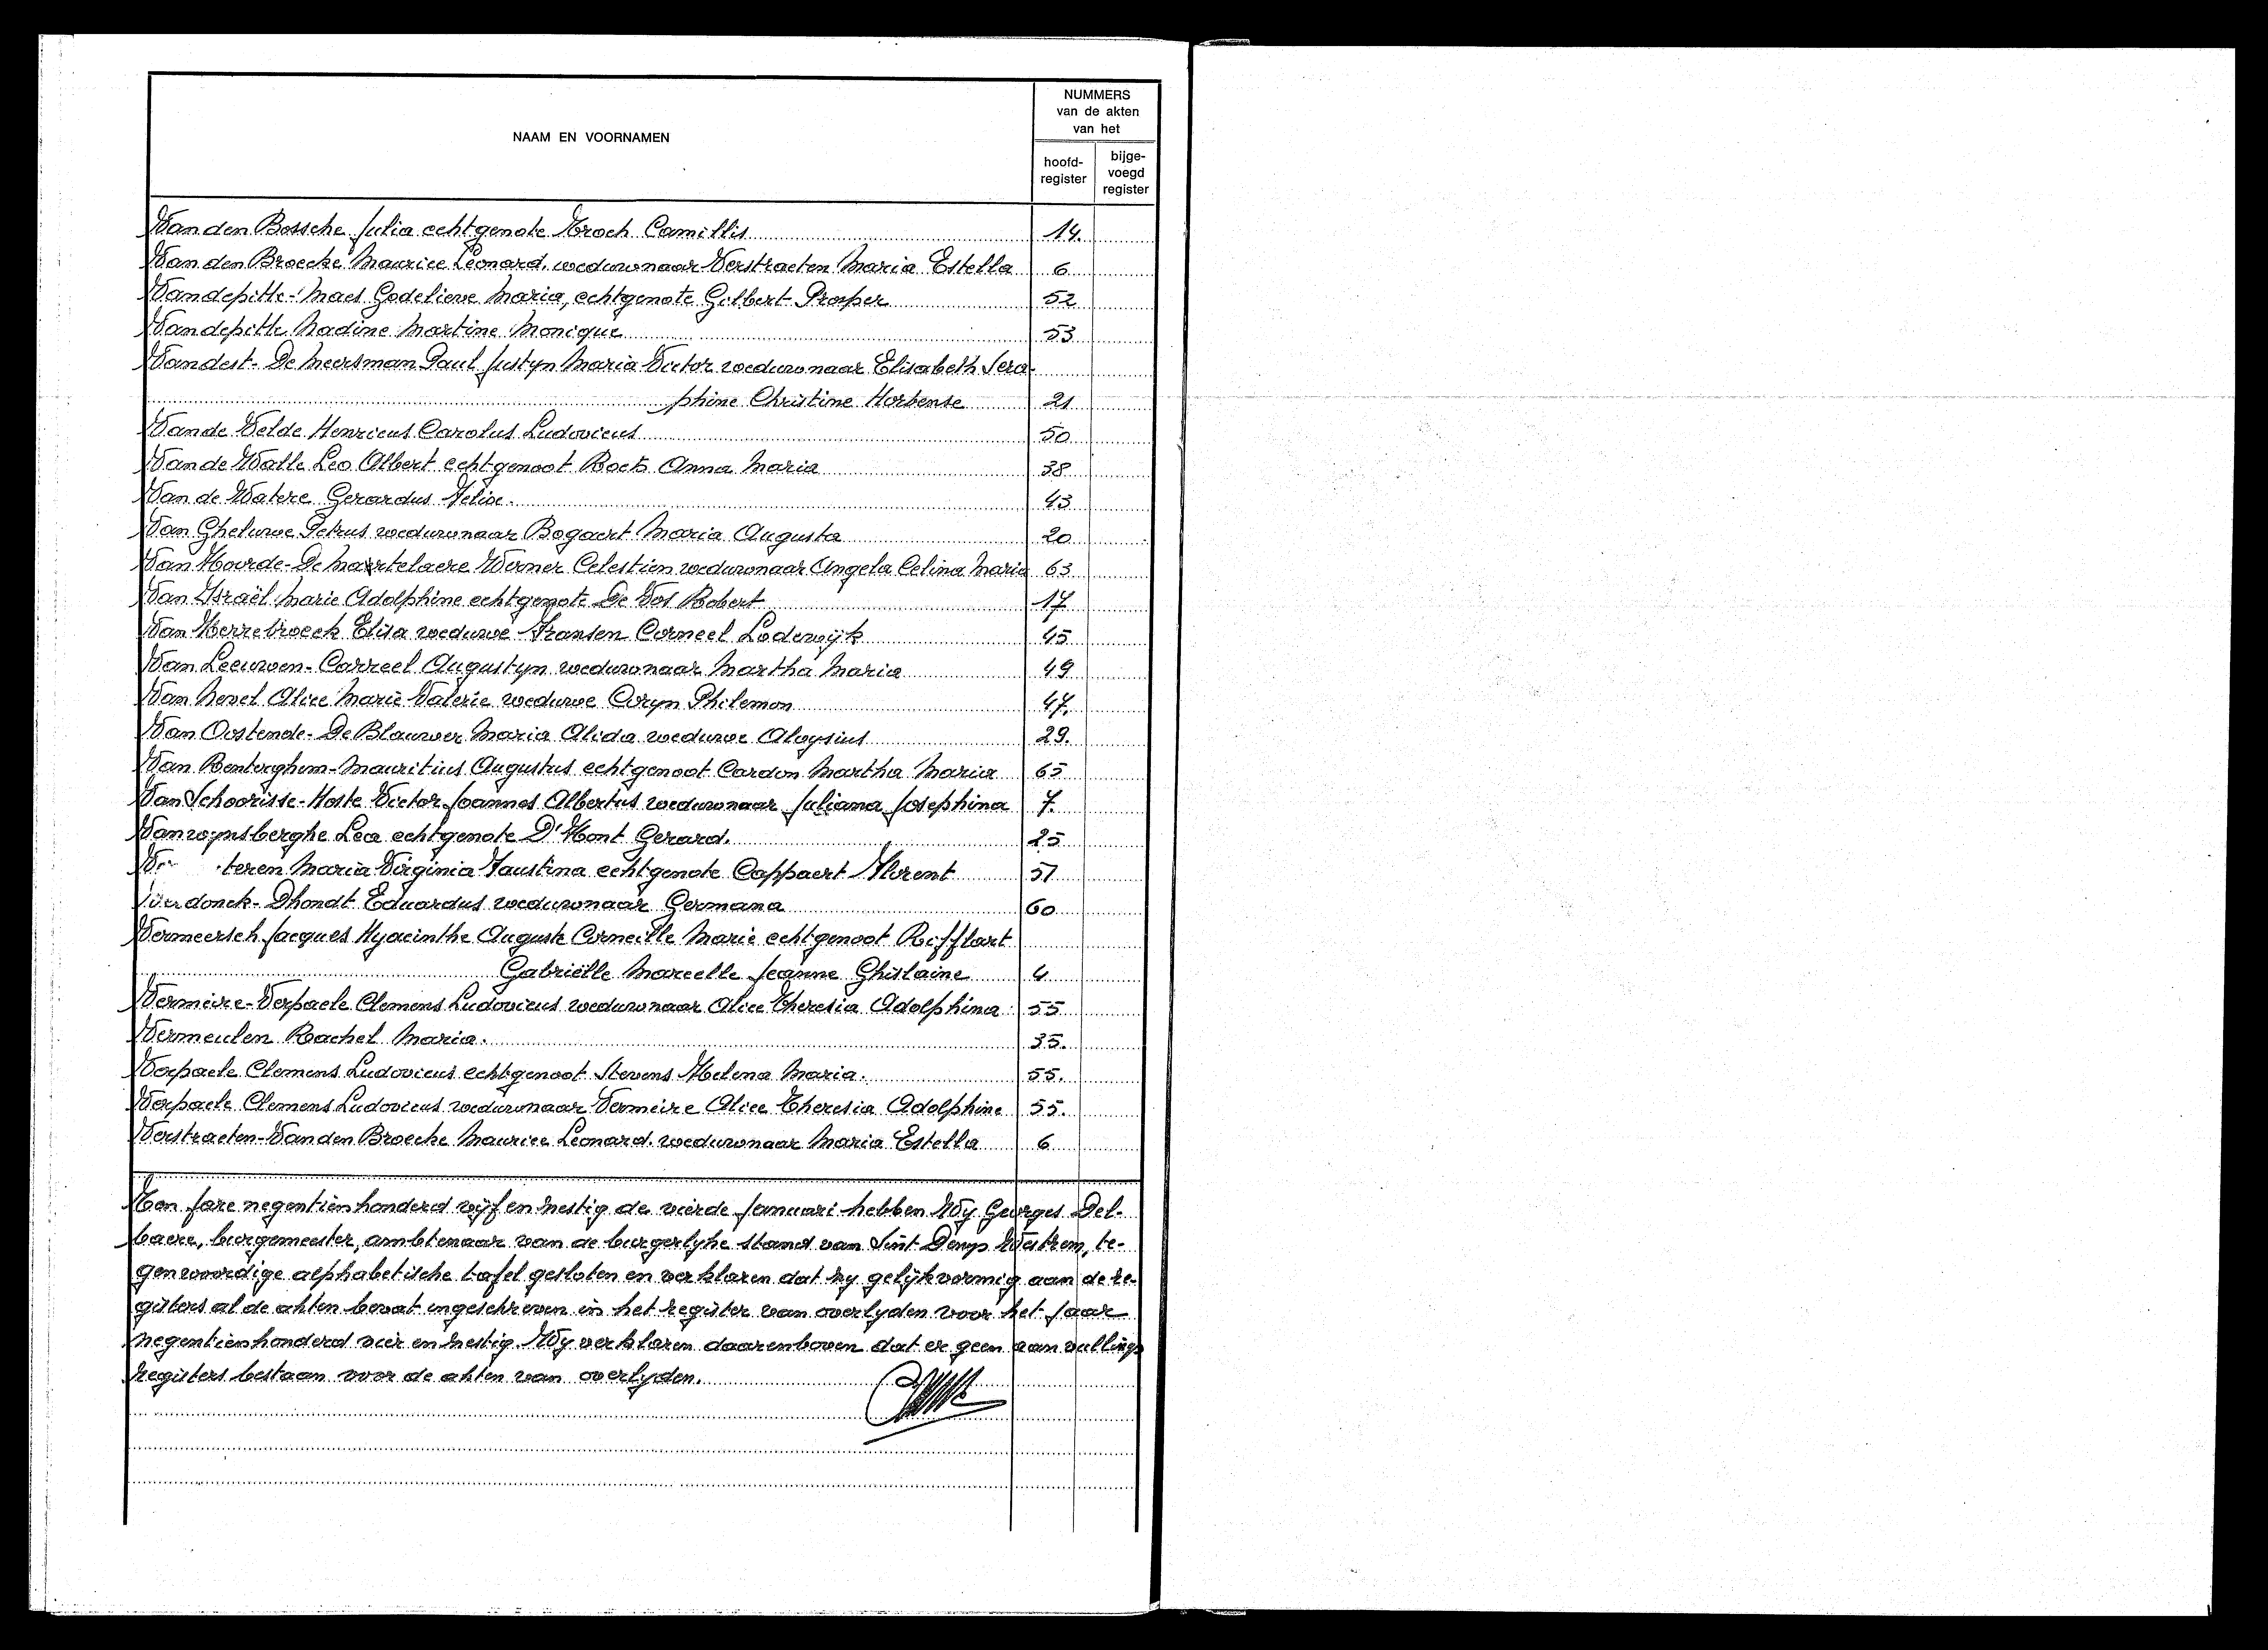 NAAM EN VOORNAMEN
NUMMERS
van de akten
van het
hoofd-
register
bijge-
voegd
register
Van den Bossche Julia echtgenote Kroch Camillis 14.
Van den Broecke Maurice Leonard. weduwnaar Verstraeten Maria Estella 6
Vandepitte-Maes Godelieve Maria, echtgenote Gilbert Prosper 52
Vandepitte Nadine Martine Monique 53
Vandest-De Meersman Paul Justyn Maria Victor weduwnaar Elisabeth Sera-
phine Christine Hortense 21
Van de Velde Henricus Carolus Ludovicus 50
Van de Walle Leo Albert echtgenoot Boets Anna Maria 38
Van de Watere Gerardus Felix. 43
Van Gheluwe Petrus weduwnaar Bogaert Maria Augusta 20
Van Hoorde-De Martelaere Werner Celestien weduwnaar Angela Celina Maria 63
Van Israël Marie Adolphine echtgenote De Vos Robert 17
Van Kerrebroeck Elisa weduwe Fransen Corneel Lodewijk 45
Van Leeuwen-Carreel Augustyn weduwnaar Martha Maria 49
Van Nevel Alice Marie Valerie weduwe Coryn Philemon 47.
Van Oostende-De Blauwer Maria Alida weduwe Aloysius 29.
Van Renterghem-Mauritius Augustus echtgenoot Cardon Martha Maria 65
Van Schoorisse-Hoste Victor Joannes Albertus weduwnaar Juliana Josephina 7.
Vanwynsberghe Lea echtgenote D'Hont Gerard. 25
teren Maria Virginia Faustina echtgenote Cappaert Florent 51
Verdonck-Dhondt Eduardus weduwnaar Germana 60
Vermeersch Jacques Hyacinthe Auguste Corneille Marie echtgenoot Rifflart
Gabriëlle Marcelle Jeanne Ghislaine 4
Vermeire-Verpaele Clemens Ludovicus weduwnaar Alice Theresia Adolphina 55
Vermeulen Rachel Maria. 35.
Verpaele Clemens Ludovicus echtgenoot Stevens Helena Maria. 55.
Verpaele Clemens Ludovicus weduwnaar Vermeire Alice Theresia Adolphine 55.
Verstraeten-Van den Broecke Maurice Leonard. weduwnaar Maria Estella 6
Ten jare negentienhonderd vijf en zestig de vierde Januari hebben Wy Georges Del-
baere, burgemeester, ambtenaar van de burgerlyke stand van Sint Denys Westrem, te-
genwoordige alphabetische tafel gesloten en verklaren dat zy gelijkvormig aan de re-
gisters al de akten bevat ingeschreven in het register van overlyden voor het jaar
negentienhonderd vier en zestig. Wy verklaren daarenboven dat er geen aanvullings
registers bestaan voor de akten van overlyden.